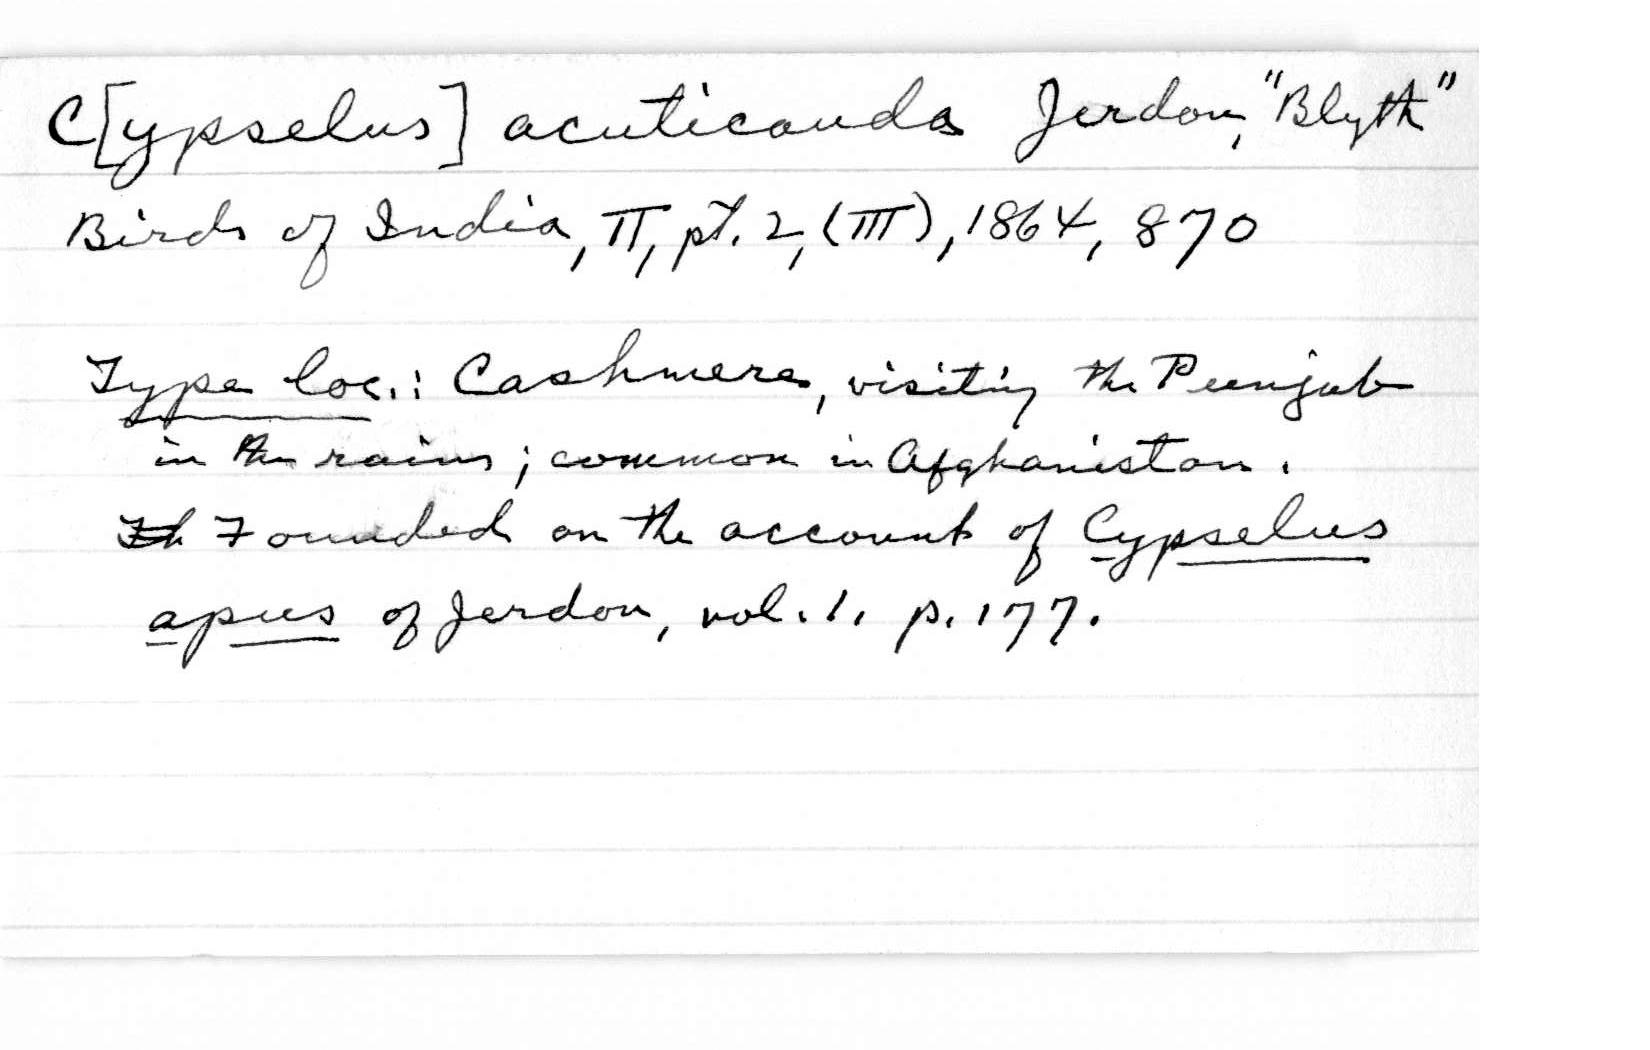 C[ypselus] acuticauda Jerdon, "Blyth"
Birds of India, II, pt. 2, (III), 1864, 870
Type loc.: Cashmere, visiting the Punjab
in the rains; common in Afghanistan.
Founded on the account of Cypselus
apus of Jerdon, vol. 1. p. 177.